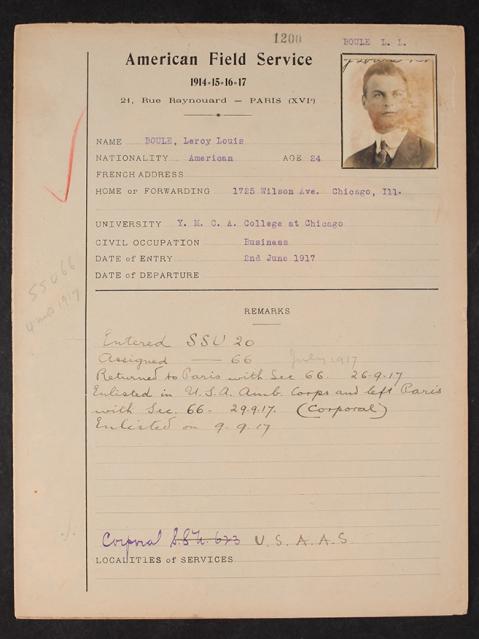 1200
BOULE L. L.
American Field Service
1914-15-16-17
21, Rue Raynouard — PARIS (XVIᵉ)
NAME BOULE, Leroy Louis
NATIONALITY American AGE 24
FRENCH ADDRESS
HOME or FORWARDING 1725 Wilson Ave. Chicago, Ill.
UNIVERSITY Y. M. C. A. College at Chicago
CIVIL OCCUPATION Business
DATE of ENTRY 2nd June 1917
DATE of DEPARTURE
SSU 66
1917
REMARKS
Entered SSU 20
Assigned — 66 July 1917
Returned to Paris with Sec 66. 26-9-17
Enlisted in U.S.A. Amb. Corps and left Paris
with Sec. 66 - 29.9.17. (Corporal)
Enlisted on 9-9-17
Corporal S.S.U. 623 U. S. A. A. S.
LOCALITIES of SERVICES